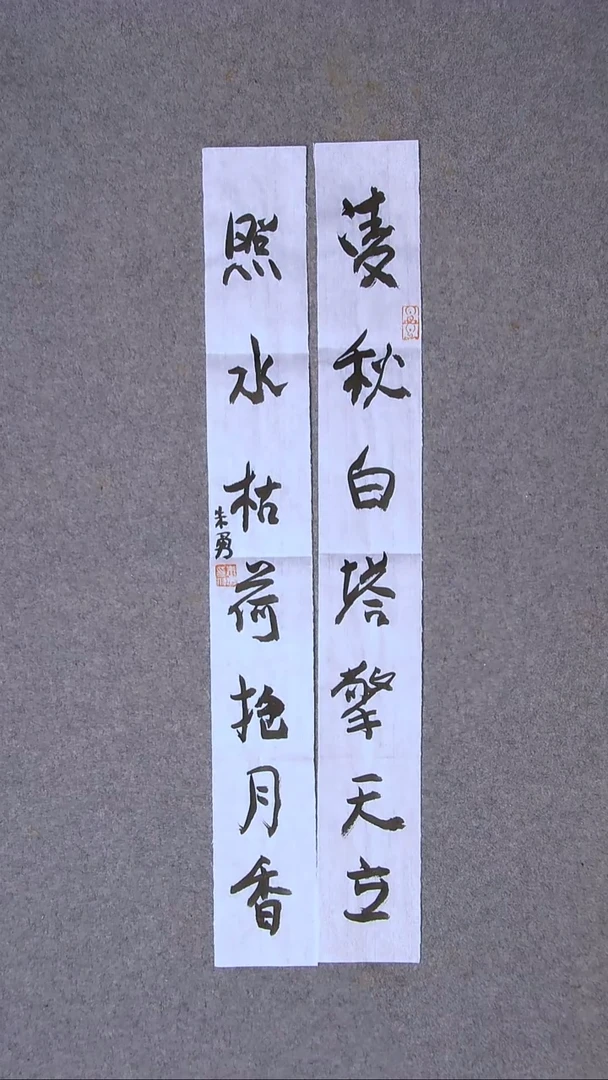 凌秋白塔擎天立
照水枯荷抱月香
朱勇